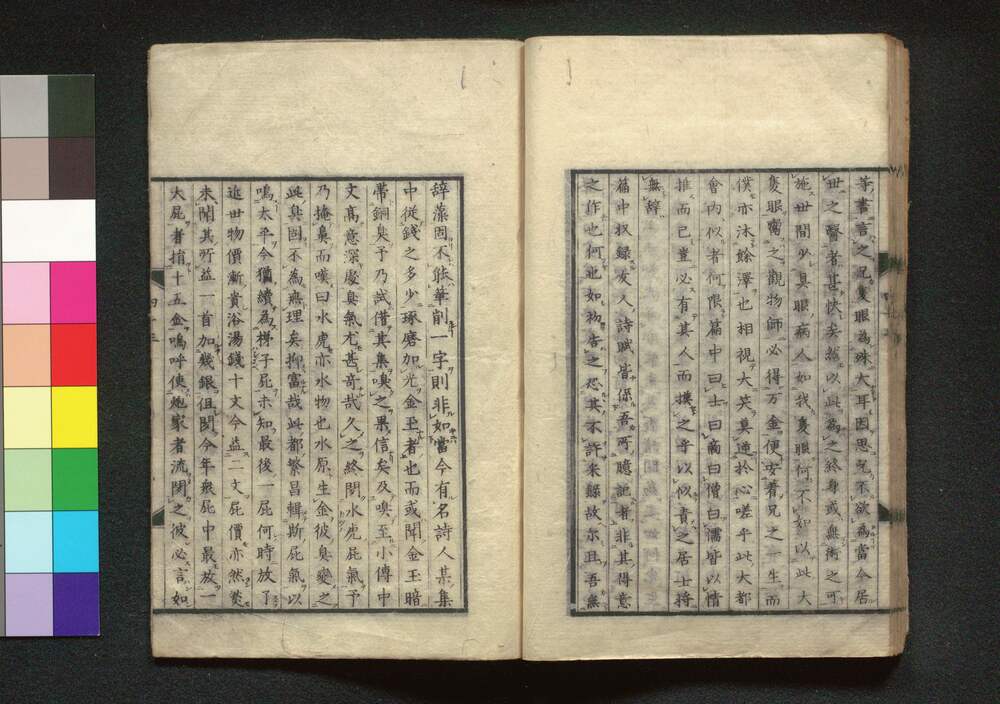 等書言之況隻眼為殊大耳因思兄不欲為當今居
世之醫者甚快矣然以此為之終身或無術之可
施世間少具眼病人如我隻眼何不如以此大
隻眼嘱之觀物師必得万金便安着兄之一生而
僕亦沐餘澤也相視大笑莫逆於心嗟乎此大都
會内似者何限篇中曰士曰商曰僧曰儒皆以情
推而已豈必有其人而摸之乎以似責之居士将
無辞
篇中放録友人詩賦皆係吾所臆記者非其得意
之作也何也如初告之恐其不許采録故尓且吾無
辞藻因不能筆削一字則非如當今有名詩人某集
中從錢之多少琢磨加光金玉者也而或聞金玉暗
帶銅臭予乃試借其集嗅之果信矣及嗅至小傳中
文髙意深處臭氣尤甚奇哉久之終聞水虎屁氣予
乃掩鼻而嘆曰水虎亦水物也水原生金彼臭變之
此臭固不為無理矣抑富哉此都繁昌輯斯屁氣以
鳴太平今猶續為梯子屁未知最後一屁何時放了
近世物價漸貴浴湯錢十文今益二文屁價亦然焚
未聞其所益一首加幾銀但聞今年衆屁中最放一
大屁者捐十五金嗚呼使炮家者流聞之彼必言如